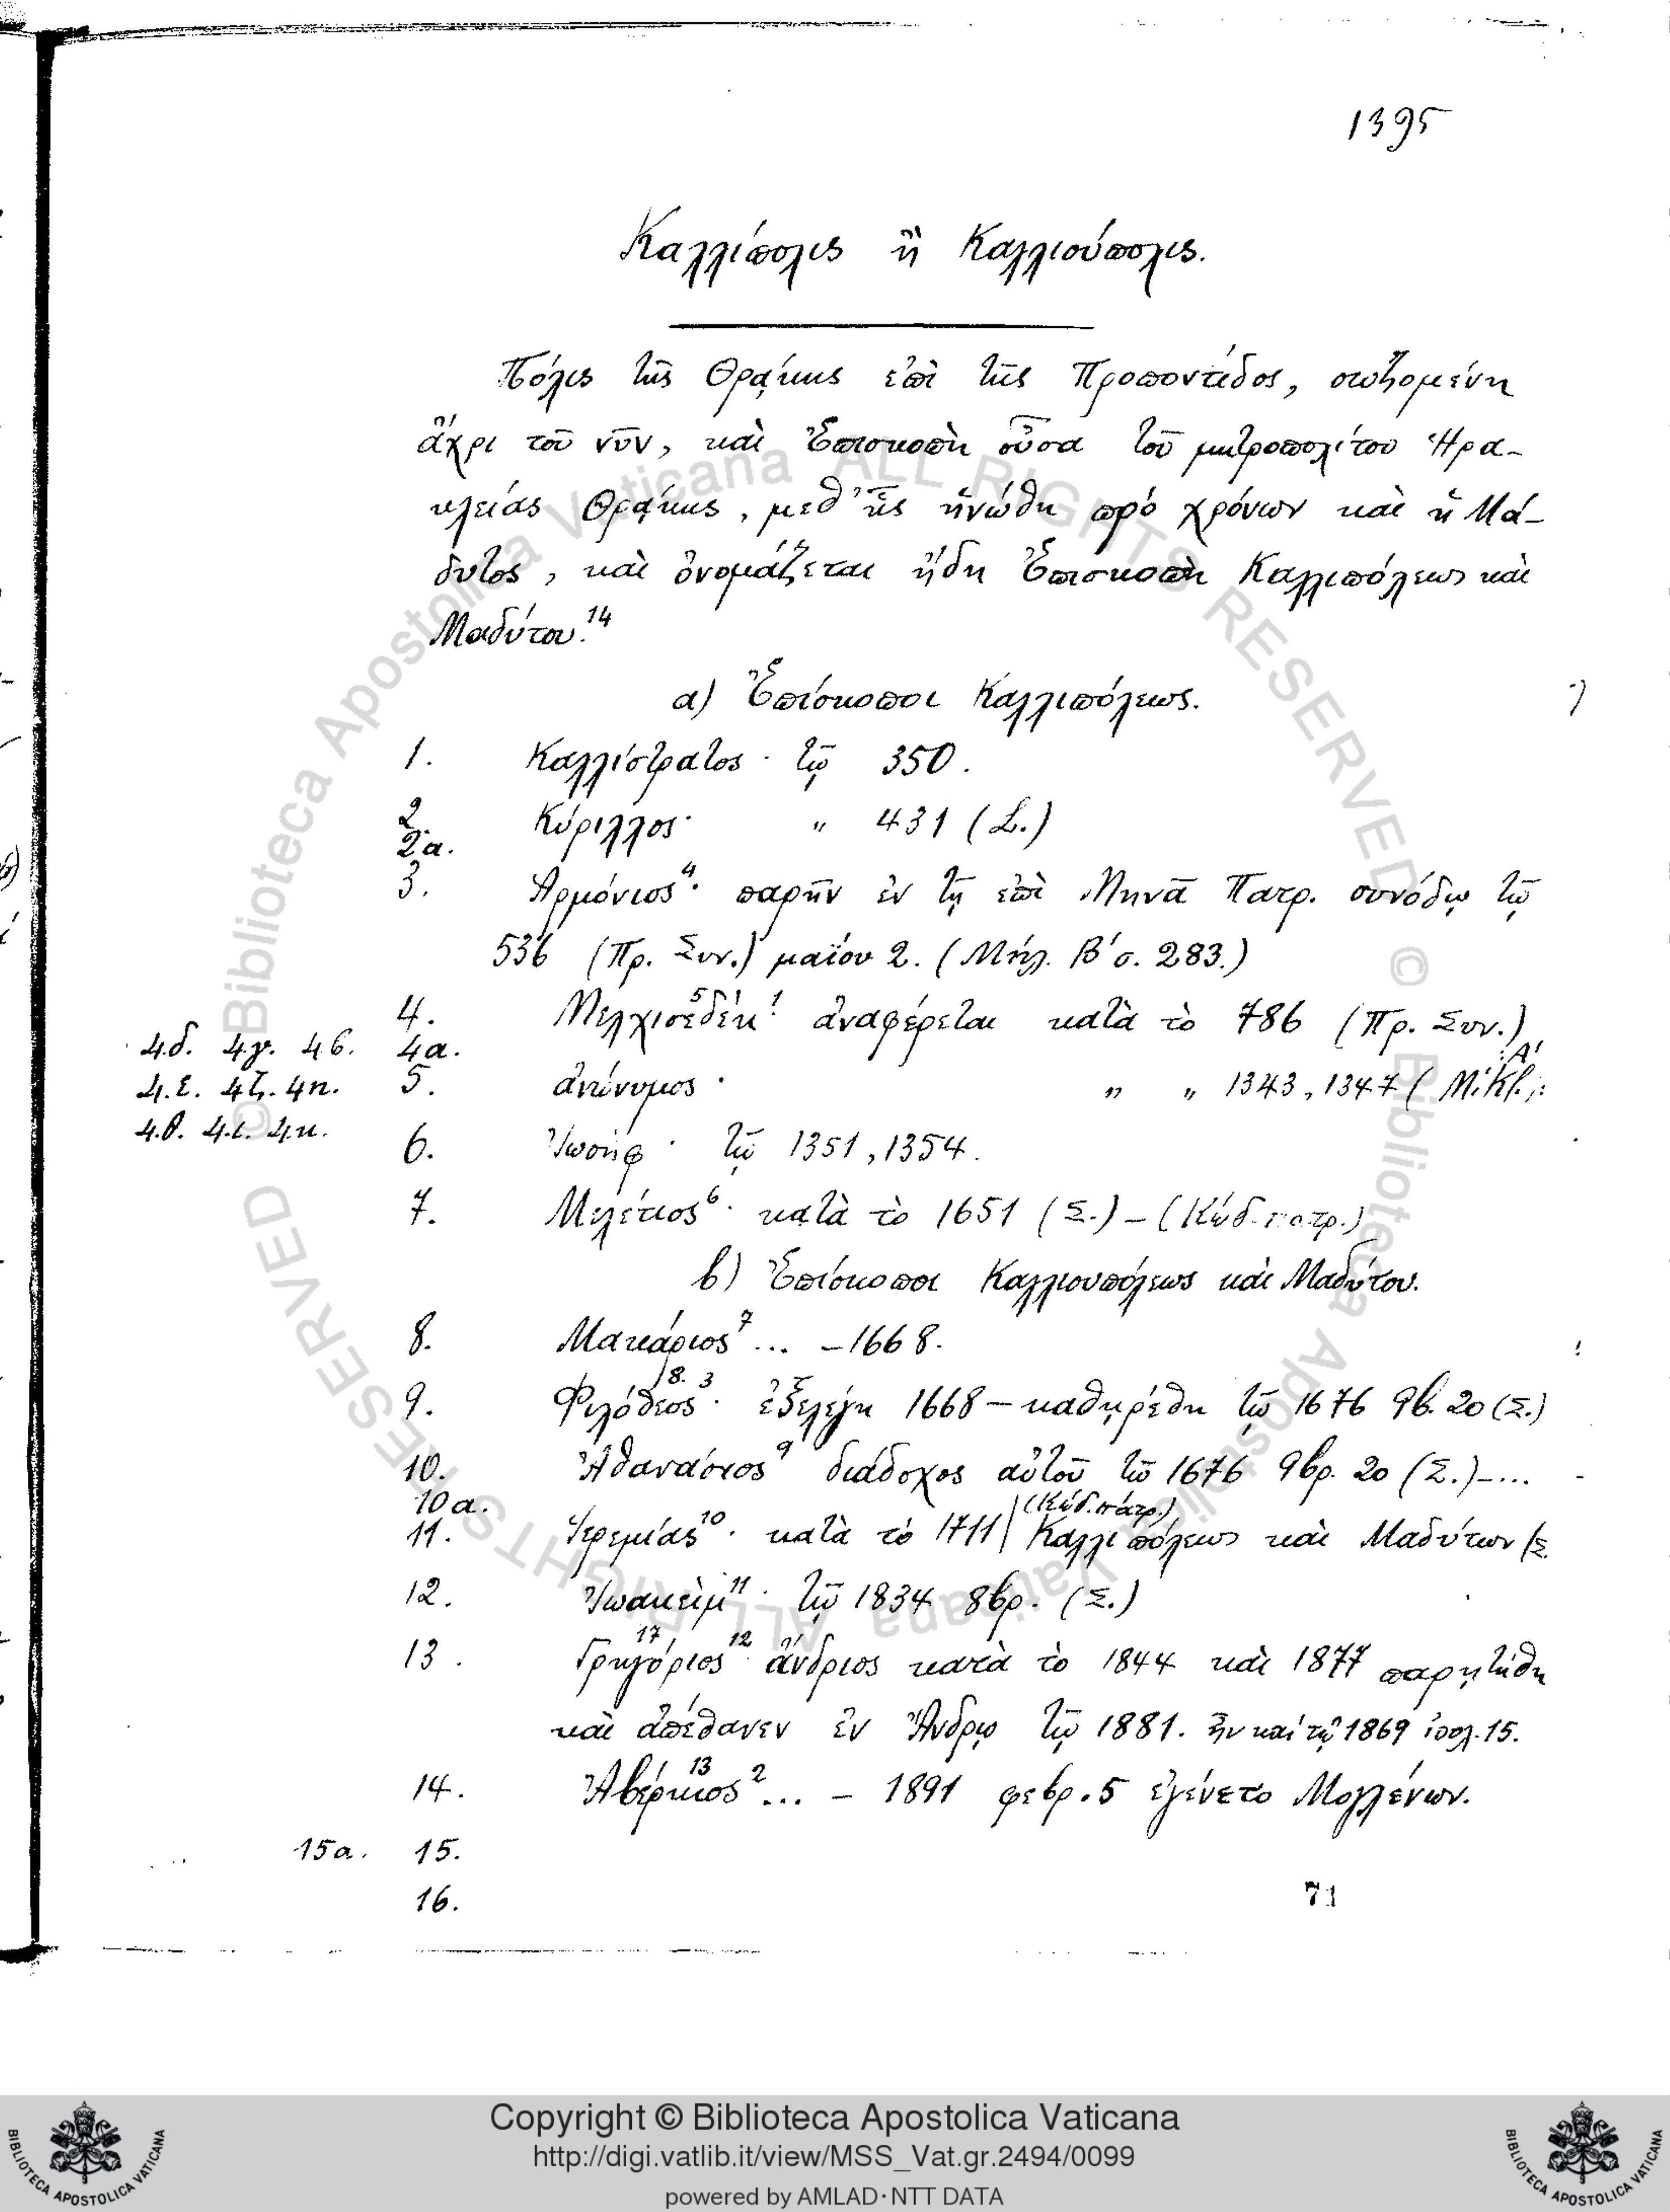 1395
Καλλίπολις ἢ Καλλιούπολις.
Πόλις τῆς Θράκης ἐπὶ τῆς Προποντίδος, σωζομένη
ἄχρι τοῦ νῦν, καὶ Ἐπισκοπὴ οὖσα τοῦ μητροπολίτου Ἡρα-
κλείας Θράκης, μεθ' ἧς ἡνώθη πρό χρόνων καὶ ἡ Μά-
δυτος, καὶ ὀνομάζεται ἤδη Ἐπισκοπὴ Καλλιπόλεως καὶ
Μαδύτου.14
α) Ἐπίσκοποι Καλλιπόλεως.
1. Καλλίστρατος · τῷ 350.
2. Κύριλλος · " 431 (L.)
2α.
3. Ἁρμόνιος4· παρῆν ἐν τῇ ἐπὶ Μηνᾶ Πατρ. συνόδῳ τῷ
536 (Πρ. Συν.) μαΐου 2. (Μήλ. Β' σ. 283.)
4. Μελχισεδέκ5 1· ἀναφέρεται κατὰ τὸ 786 (Πρ. Συν.)
4δ. 4γ. 4β. 4α.
4.ε. 4ζ. 4η. 5. ἀνώνυμος · " " 1343, 1347 (Μ. Κλ. Α'
4.θ. 4.ι. 4.κ.
6. Ἰωσήφ · τῷ 1351, 1354.
7. Μελέτιος6 · κατὰ τὸ 1651 (Σ.) – (Κώδ. πατρ.)
β) Ἐπίσκοποι Καλλιουπόλεως καὶ Μαδύτου.
8. Μακάριος7 ... – 1668.
9. Φιλόθεος8. 3 · ἐξελέγη 1668 – καθῃρέθη τῷ 1676 9β. 20 (Σ.)
10. Ἀθανάσιος9 διάδοχος αὐτοῦ τῷ 1676 9βρ. 20 (Σ.) – ...
10α. (Κώδ. πατρ.)
11. Ἱερεμίας10 · κατὰ τὸ 1711 Καλλιπόλεως καὶ Μαδύτων (Σ.
12. Ἰωακεὶμ11 · τῷ 1834 8βρ. (Σ.)
13. Γρηγόριος17 12 · ἄνδριος κατὰ τὸ 1844 καὶ 1877 παρῃτήθη
καὶ ἀπέθανεν ἐν Ἄνδρῳ τῷ 1881. ἦν καὶ τῷ 1869 ἰουλ. 15.
14. Ἀβέρκιος13 2 ... – 1891 φεβρ. 5 ἐγένετο Μογλένων.
15α. 15.
16.
71
© Biblioteca Apostolica Vaticana ALL RIGHTS RESERVED
Copyright © Biblioteca Apostolica Vaticana
http://digi.vatlib.it/view/MSS_Vat.gr.2494/0099
powered by AMLAD·NTT DATA
BIBLIOTECA APOSTOLICA VATICANA
BIBLIOTECA APOSTOLICA VATICANA